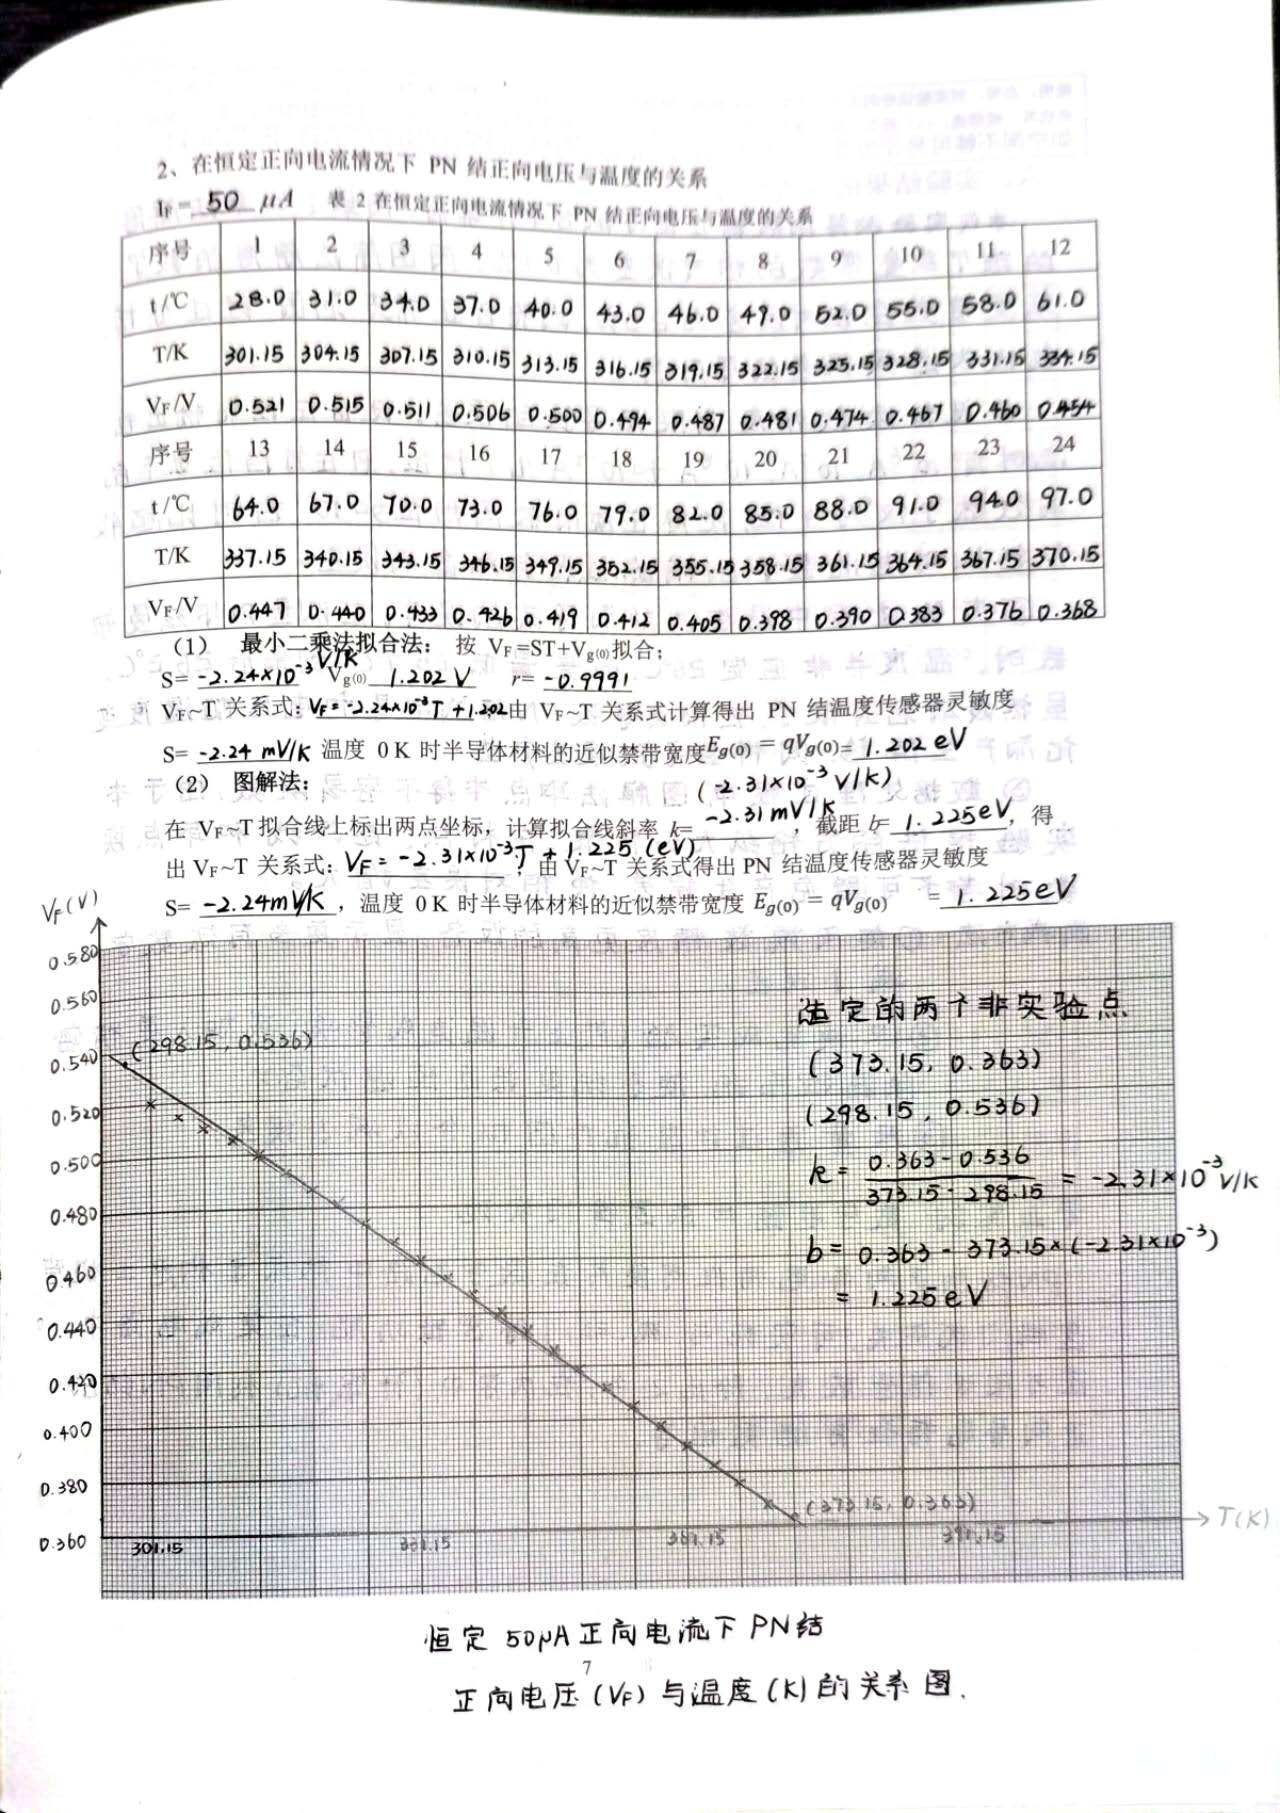 2、在恒定正向电流情况下 PN 结正向电压与温度的关系
IF= 50 μA 表 2 在恒定正向电流情况下 PN 结正向电压与温度的关系
序号 1 2 3 4 5 6 7 8 9 10 11 12
t/℃ 28.0 31.0 34.0 37.0 40.0 43.0 46.0 49.0 52.0 55.0 58.0 61.0
T/K 301.15 304.15 307.15 310.15 313.15 316.15 319.15 322.15 325.15 328.15 331.15 334.15
VF/V 0.521 0.515 0.511 0.506 0.500 0.494 0.487 0.481 0.474 0.467 0.460 0.454
序号 13 14 15 16 17 18 19 20 21 22 23 24
t/℃ 64.0 67.0 70.0 73.0 76.0 79.0 82.0 85.0 88.0 91.0 94.0 97.0
T/K 337.15 340.15 343.15 346.15 349.15 352.15 355.15 358.15 361.15 364.15 367.15 370.15
VF/V 0.447 0.440 0.433 0.426 0.419 0.412 0.405 0.398 0.390 0.383 0.376 0.368
（1） 最小二乘法拟合法： 按 VF=ST+Vg(0)拟合；
S= -2.24×10⁻³ V/K Vg(0) 1.202 V r= -0.9991
VF~T 关系式：VF=-2.24×10⁻³T+1.202由 VF~T 关系式计算得出 PN 结温度传感器灵敏度
S= -2.24 mV/K 温度 0K 时半导体材料的近似禁带宽度Eg(0) = qVg(0)= 1.202 eV
（2） 图解法：
(-2.31×10⁻³ V/K)
在 VF~T 拟合线上标出两点坐标，计算拟合线斜率 k= -2.31 mV/K ，截距 b= 1.225eV，得
出 VF~T 关系式：VF= -2.31×10⁻³T + 1.225 (eV)；由 VF~T 关系式得出 PN 结温度传感器灵敏度
S= -2.24mV/K ，温度 0K 时半导体材料的近似禁带宽度 Eg(0) = qVg(0) = 1.225eV
VF(V)
0.580
0.560
0.540
0.520
0.500
0.480
0.460
0.440
0.420
0.400
0.380
0.360
(298.15, 0.536)
选定的两个非实验点
(373.15, 0.363)
(298.15, 0.536)
k= 0.363-0.536
373.15-298.15
= -2.31×10⁻³ V/K
b= 0.363 - 373.15×(-2.31×10⁻³)
= 1.225eV
(373.15, 0.363)
T(K)
301.15 331.15 361.15 391.15
恒定 50μA 正向电流下 PN结
7
正向电压 (VF) 与温度 (K) 的关系图.